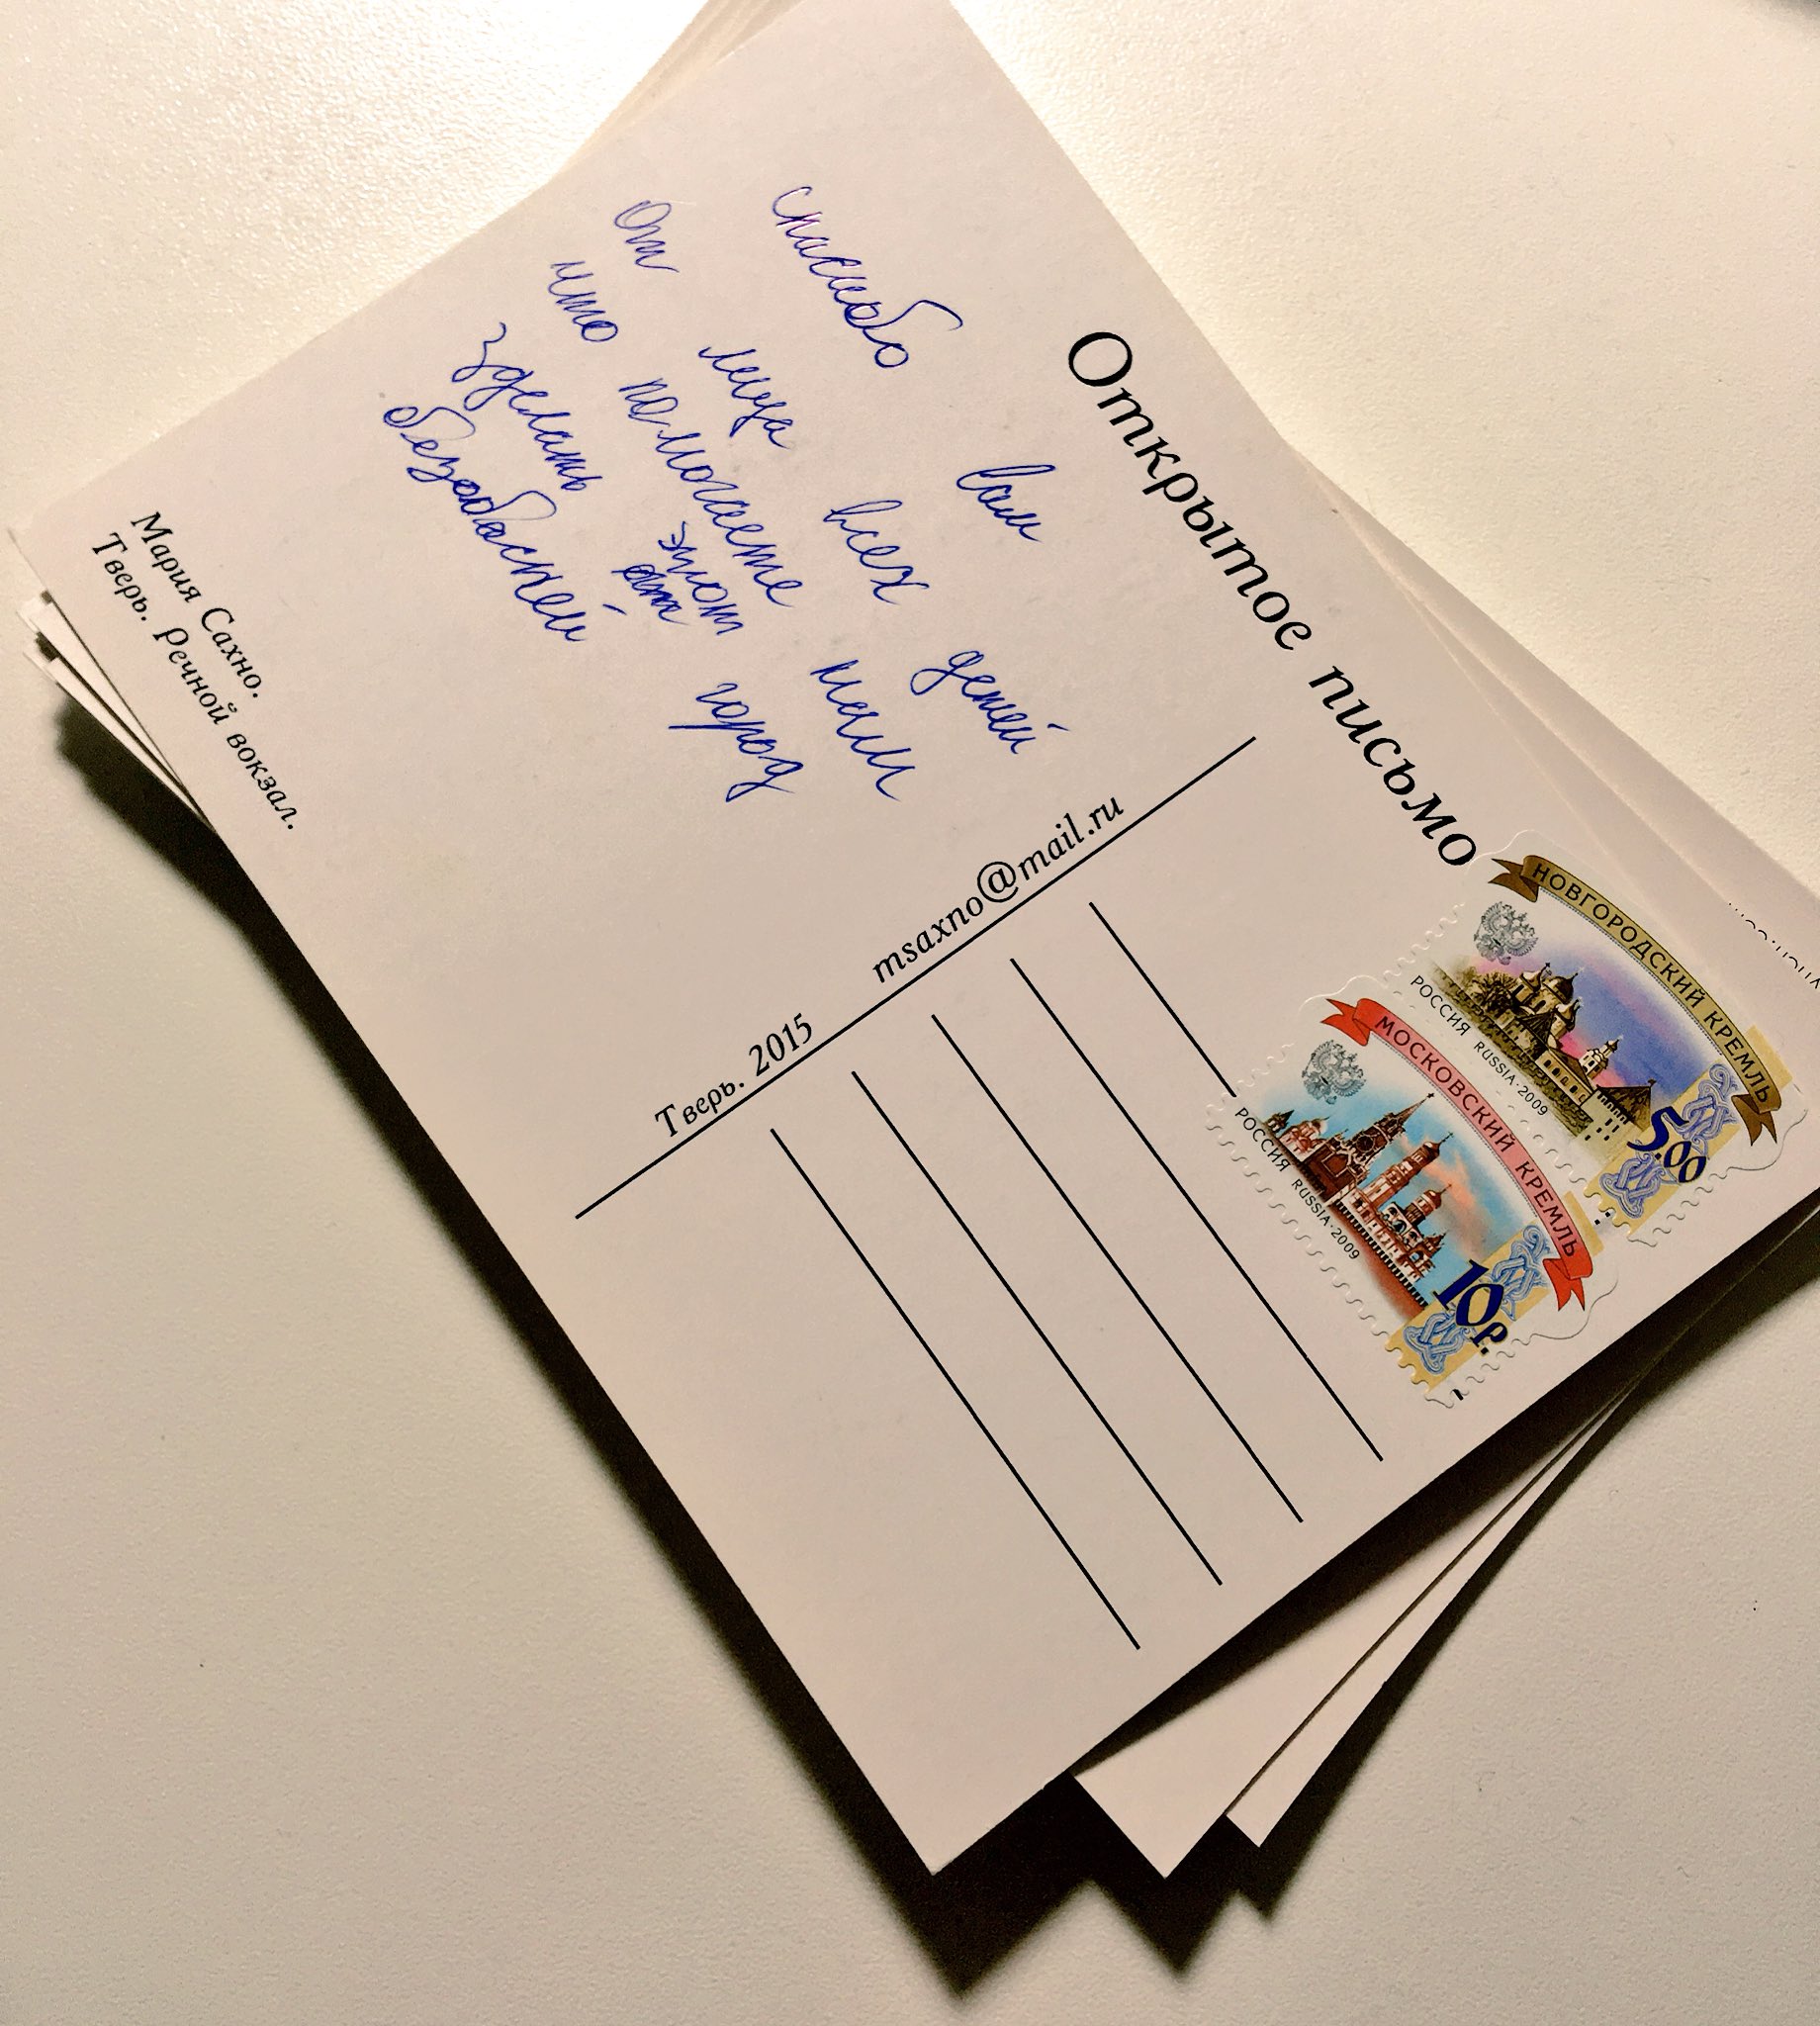 Открытое письмо
спасибо вам
От лица всех детей
что помогаете нам
зделать этот город
безобасней
Мария Сахно.
Тверь. Речной вокзал.
Тверь. 2015 msaxno@mail.ru
НОВГОРОДСКИЙ КРЕМЛЬ
РОССИЯ RUSSIA·2009
5.00
МОСКОВСКИЙ КРЕМЛЬ
РОССИЯ RUSSIA·2009
10р.